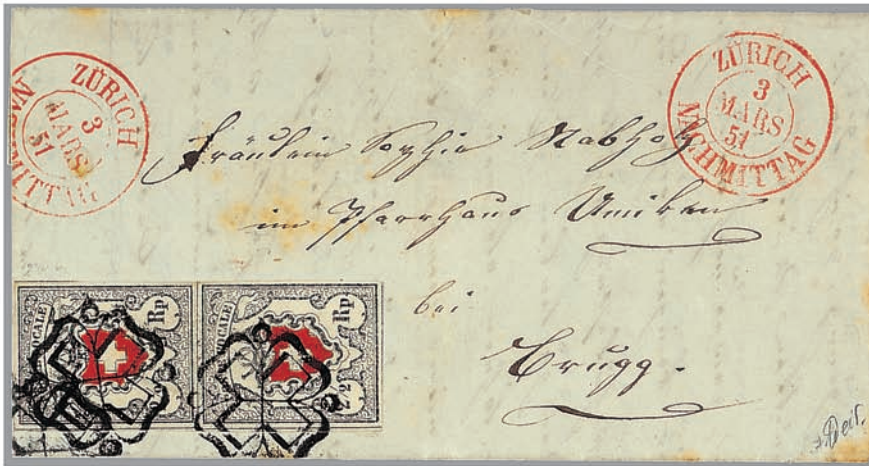 ZÜRICH
3
MARS
51
NACHMITTAG
ZÜRICH
3
MARS
51
NACHMITTAG
Fräulein Sophie Nabholz
im Pfarrhaus Umiken
bei
Brugg.
LOCALE
Rp
LOCALE
Rp